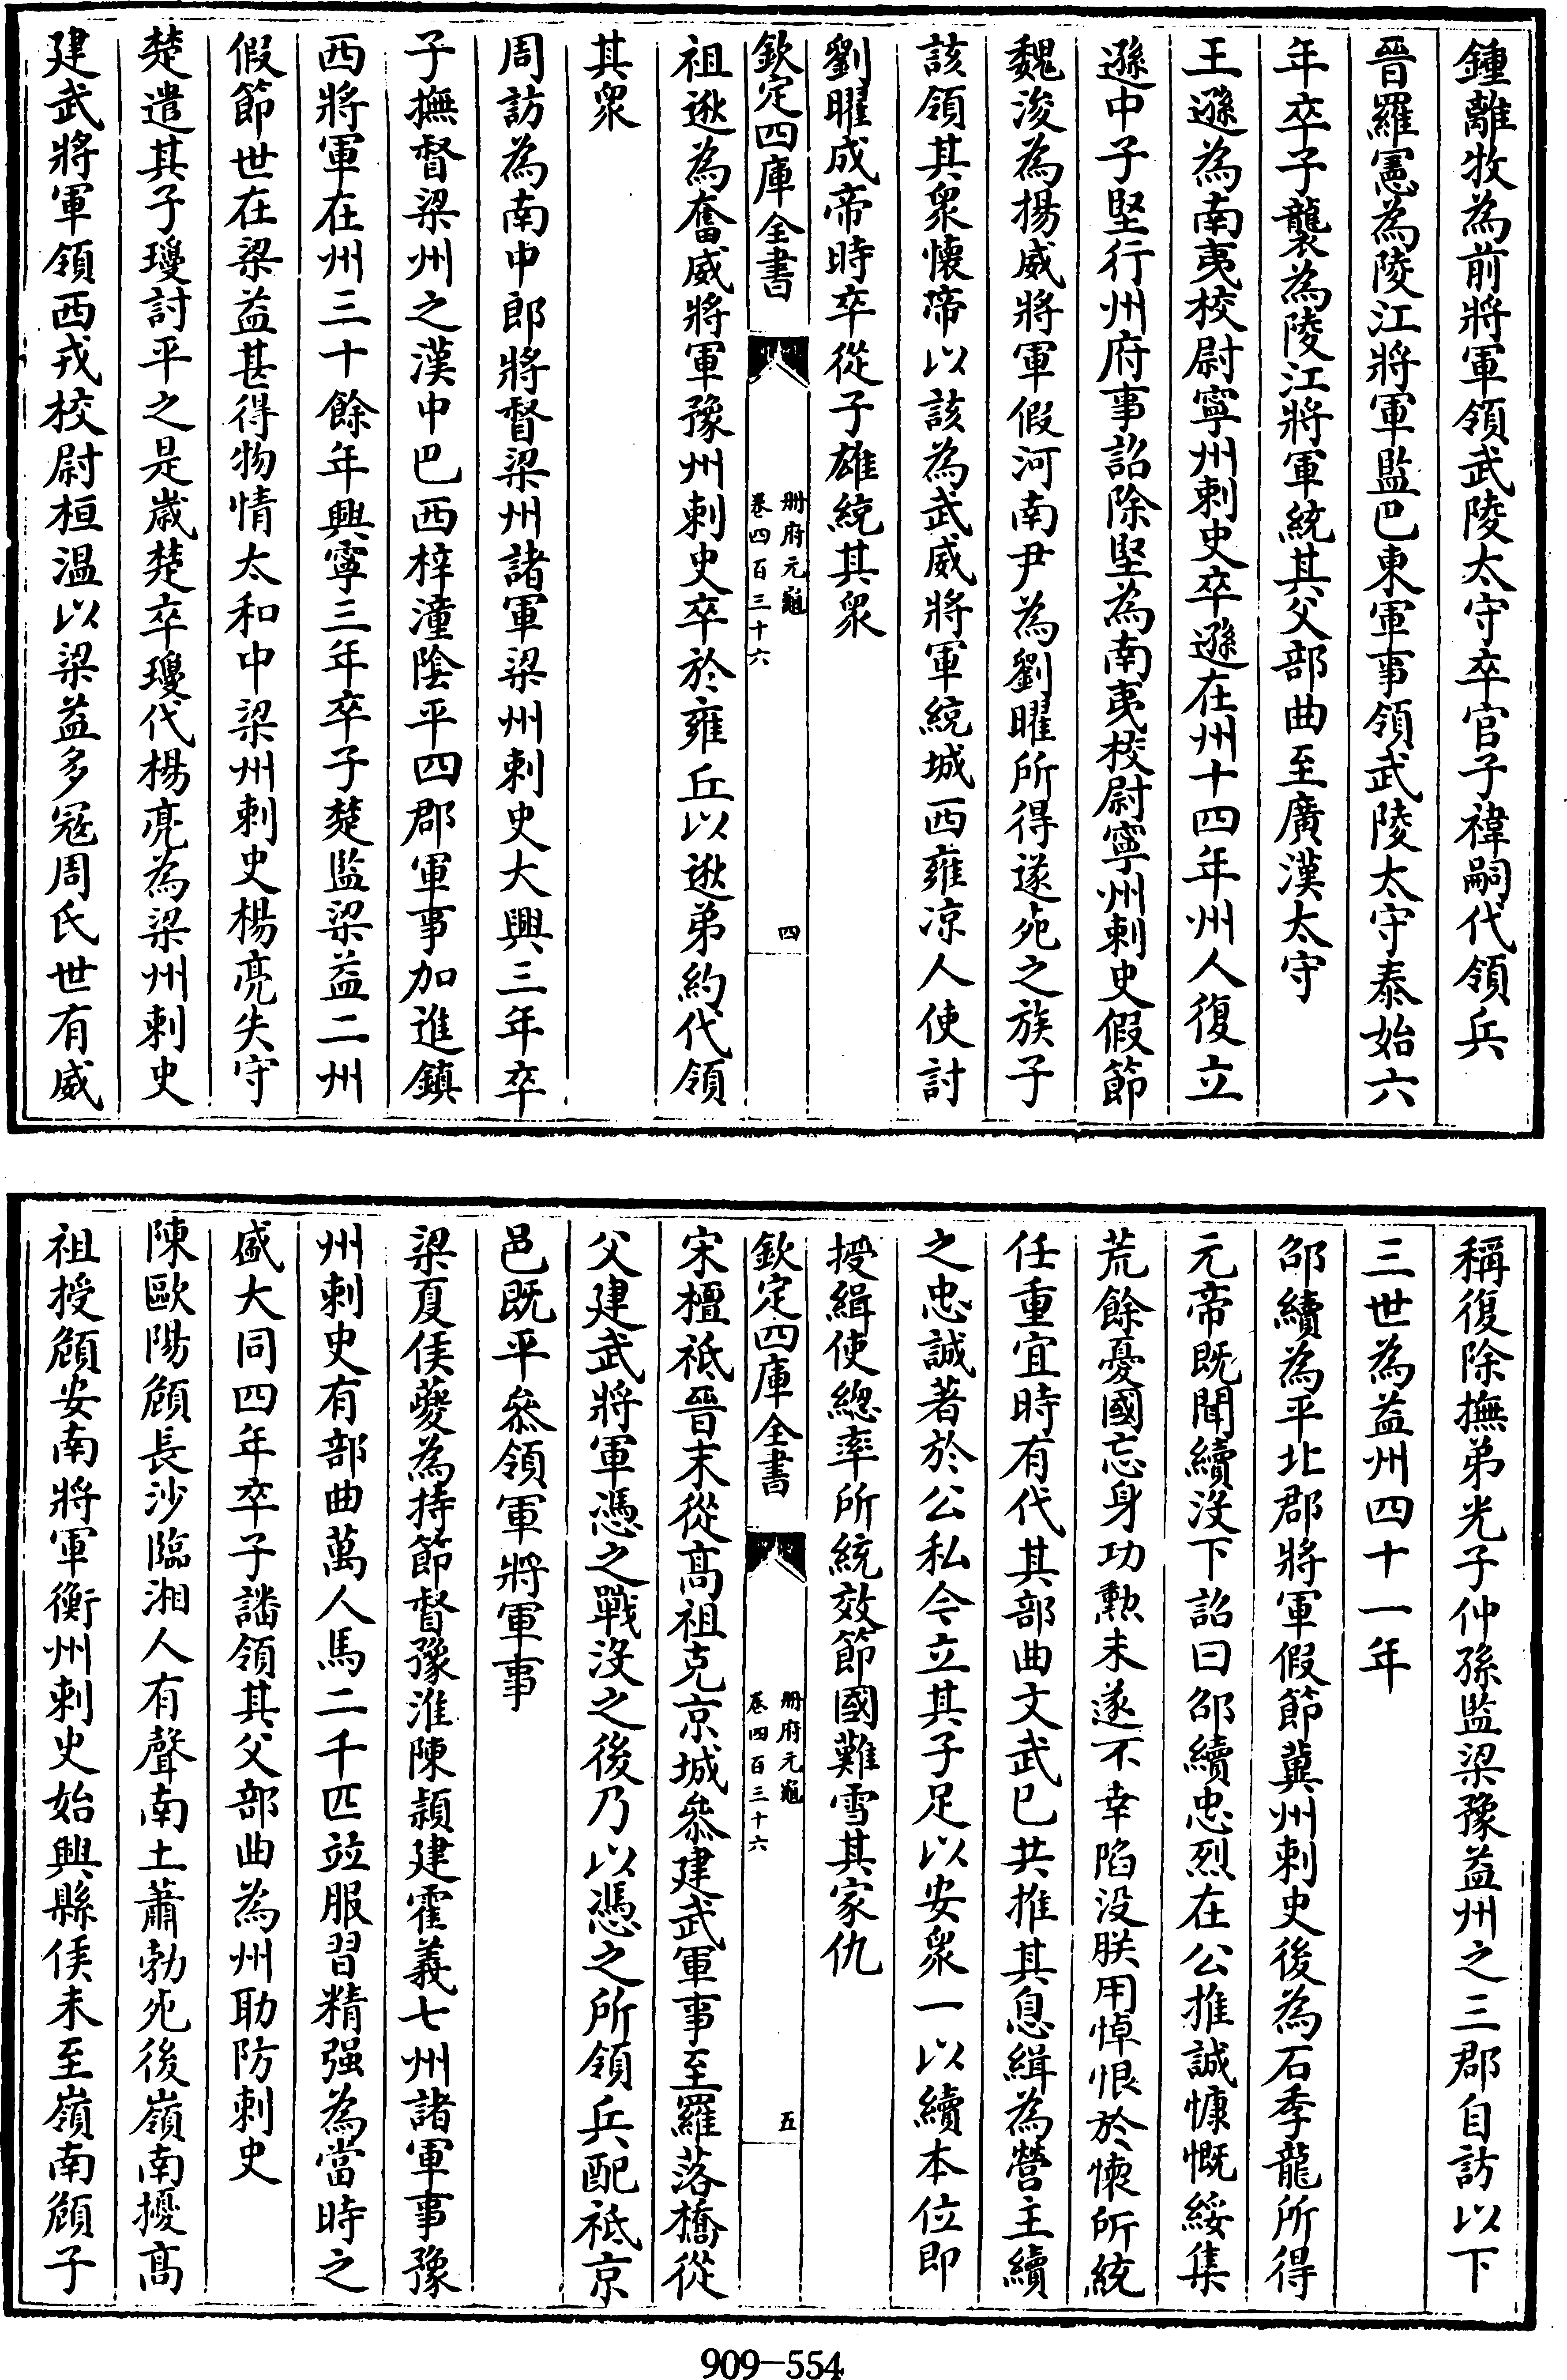 鍾離牧為前將軍領武陵太守卒官子禕嗣代領兵
晉羅憲為陵江將軍監巴東軍事領武陵太守泰始六
年卒子襲為陵江將軍統其父部曲至廣漢太守
王遜為南夷校尉寧州刺史卒遜在州十四年州人復立
遜中子堅行州府事詔除堅為南夷校尉寧州刺史假節
魏浚為揚威將軍假河南尹為劉曜所得遂死之族子
該領其衆懐帝以該為武威將軍統城西雍凉人使討
劉曜成帝時卒從子雄統其衆
欽定四庫全書
册府元龜
卷四百三十六
四
祖逖為奮威將軍豫州刺史卒於雍丘以逖弟約代領
其衆
周訪為南中郎將督梁州諸軍梁州刺史大興三年卒
子撫督梁州之漢中巴西梓潼陰平四郡軍事加進鎮
西將軍在州三十餘年興寧三年卒子楚監梁益二州
假節世在梁益甚得物情太和中梁州刺史楊亮失守
楚遣其子瓊討平之是歳楚卒瓊代楊亮為梁州刺史
建武將軍領西戎校尉桓温以梁益多寇周氏世有威
稱復除撫弟光子仲孫監梁豫益州之三郡自訪以下
三世為益州四十一年
邵續為平北郡將軍假節冀州刺史後為石季龍所得
元帝既聞續沒下詔曰邵續忠烈在公推誠慷慨綏集
荒餘憂國忘身功勲未遂不幸陷没朕用悼恨於懐所統
任重宜時有代其部曲文武已共推其息緝為營主續
之忠誠著於公私今立其子足以安衆一以續本位即
授緝使總率所統效節國難雪其家仇
欽定四庫全書
册府元龜
卷四百三十六
五
宋檀祗晉末從髙祖克京城叅建武軍事至羅落橋從
父建武將軍憑之戰沒之後乃以憑之所領兵配祗京
邑既平叅領軍將軍事
梁夏侯夔為持節督豫淮陳潁建霍義七州諸軍事豫
州刺史有部曲萬人馬二千匹竝服習精强為當時之
盛大同四年卒子譒領其父部曲為州助防刺史
陳歐陽頠長沙臨湘人有聲南土蕭勃死後嶺南擾髙
祖授頠安南將軍衡州刺史始興縣侯未至嶺南頠子
909-554